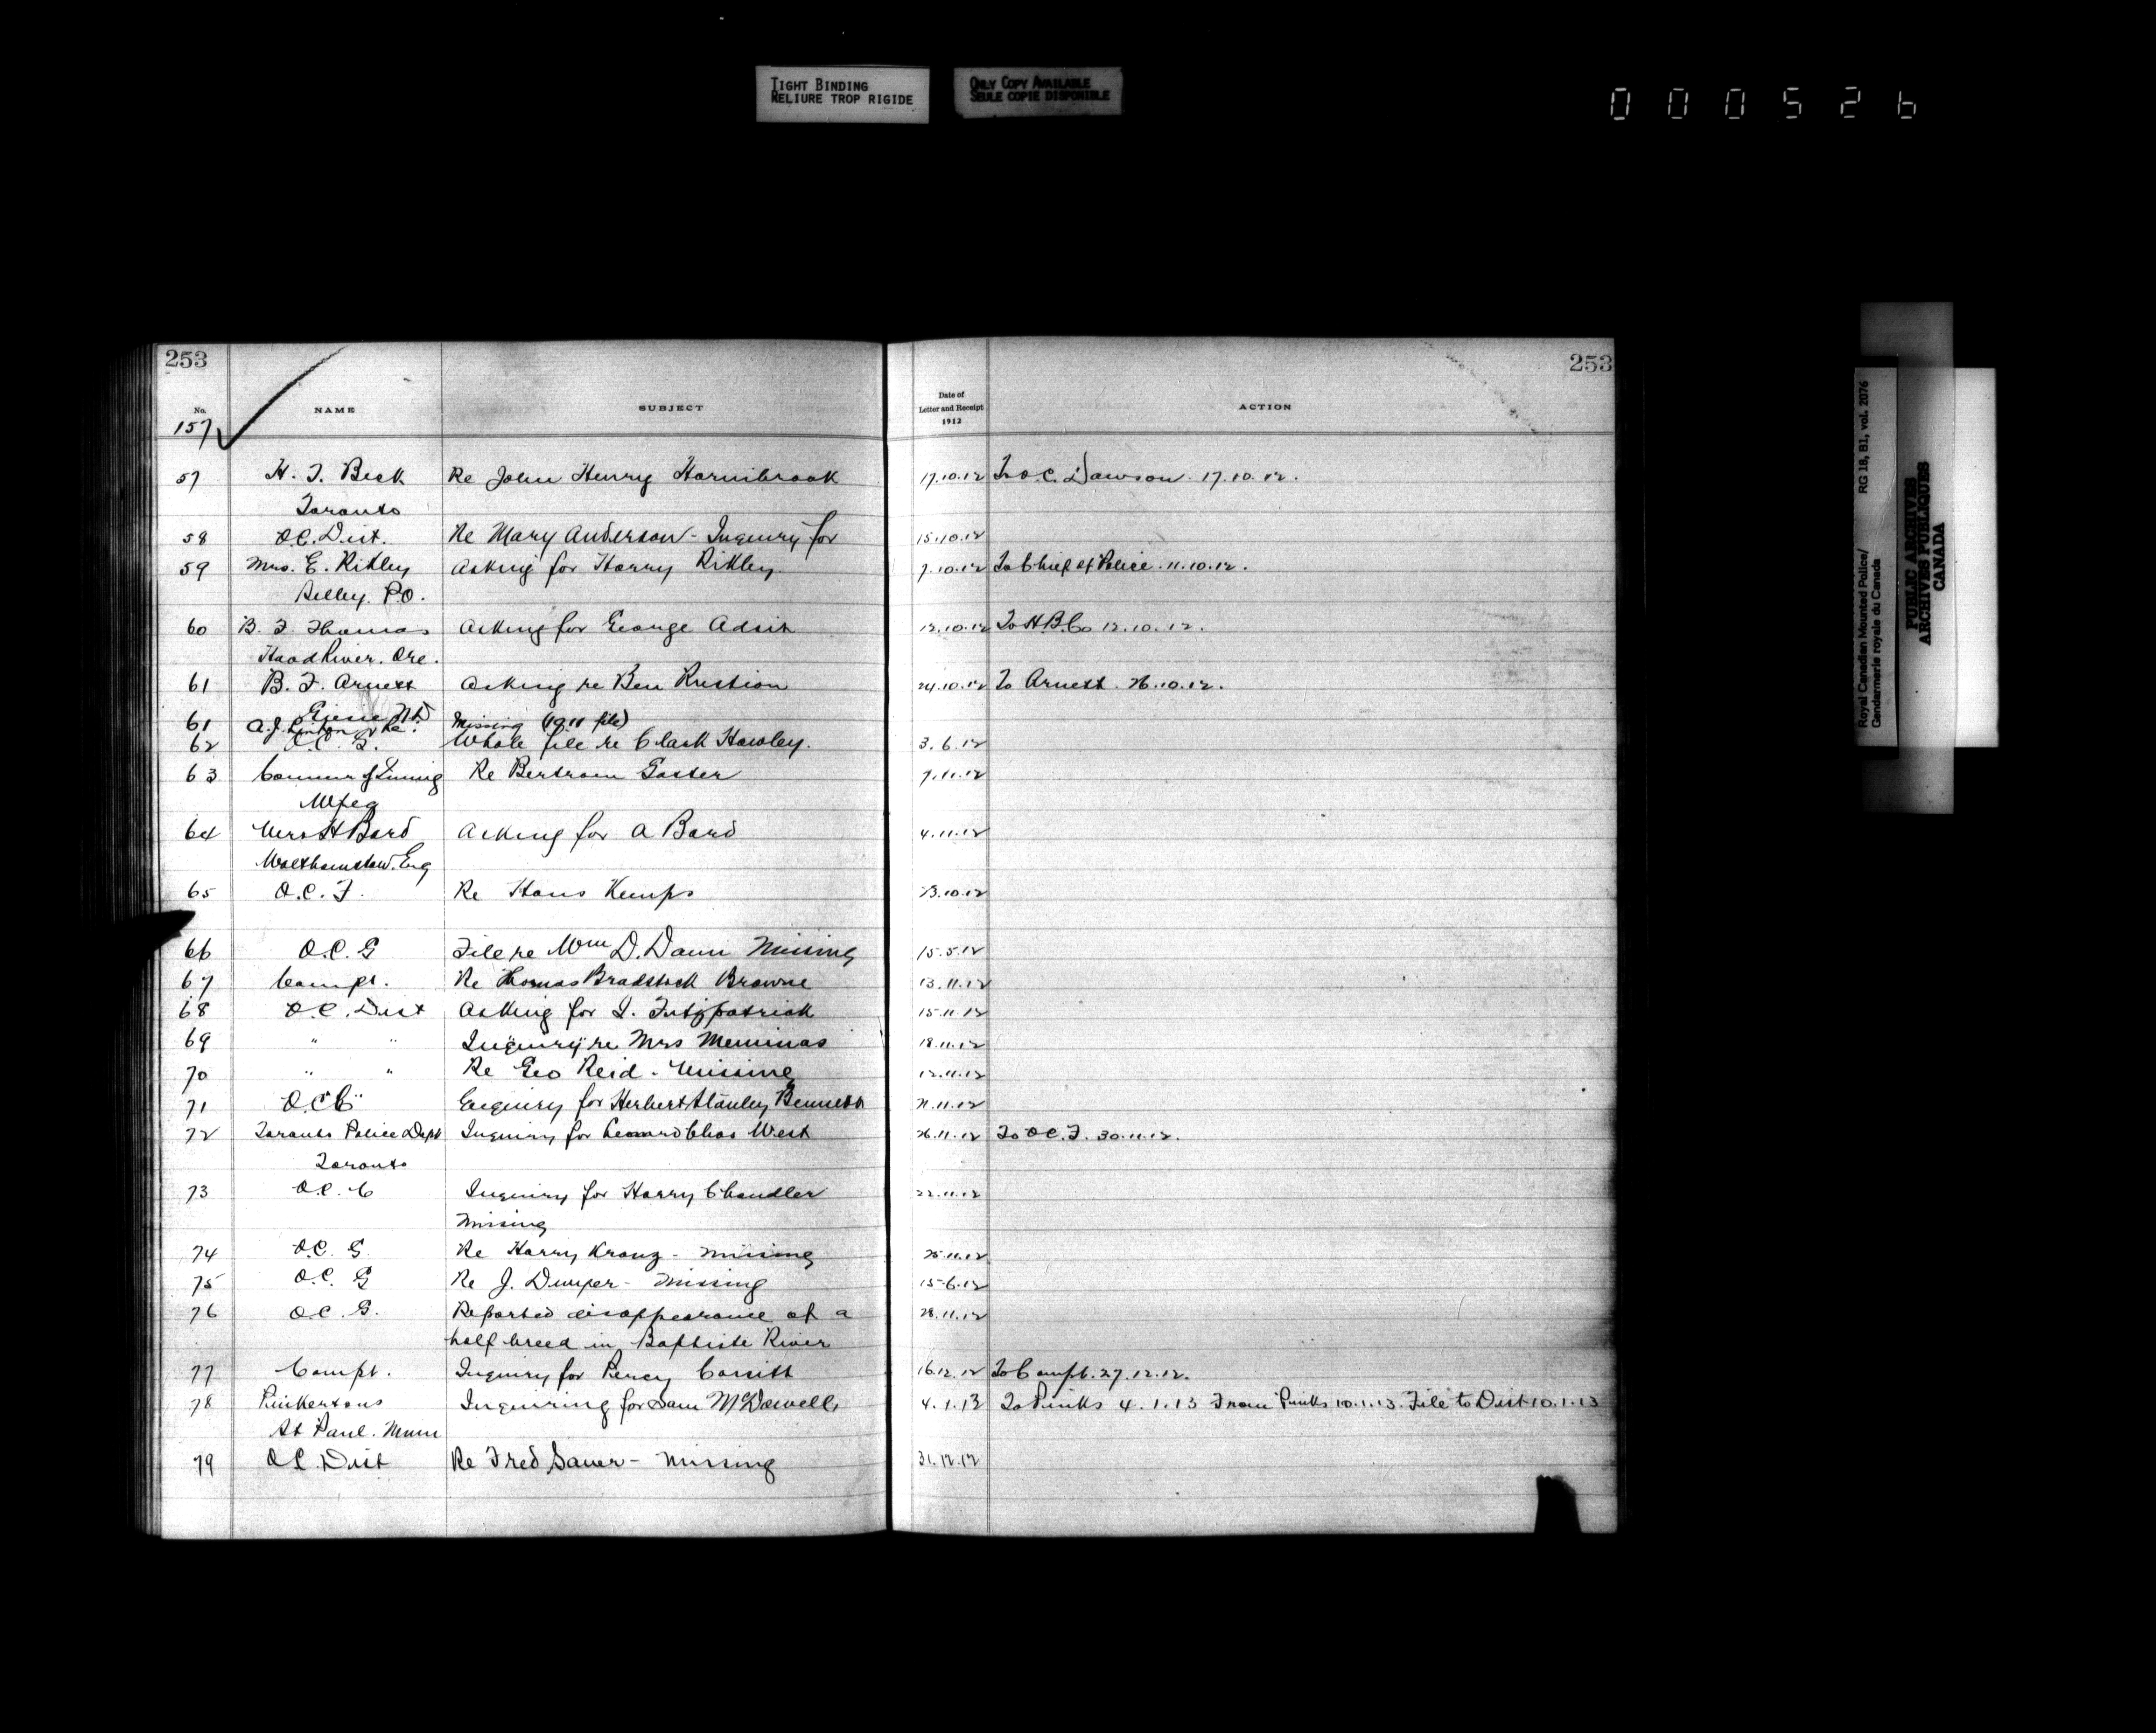 TIGHT BINDING
RELIURE TROP RIGIDE
ONLY COPY AVAILABLE
SEULE COPIE DISPONIBLE
000526
253 253
No. NAME SUBJECT Date of Letter and Receipt 1912 ACTION
157
57 H. T. Beck Re John Henry Hornibrook 17.10.12 To O.C. Dawson. 17.10.12.
Toronto
58 O.C. Dist. Re Mary Anderson - Inquiry for 15.10.12
59 Mrs. E. Rikley Asking for Harry Rikley. 7.10.12 To Chief of Police. 11.10.12.
P.O.
60 B. F. Thomas Asking for George Adsit 12.10.12 To H.B.Co 12.10.12.
Hood River. Ore.
61 B. F. Arnett Asking re Ben Rustion 24.10.12 To Arnett. 26.10.12.
61 A.J. Linton Missing (1911 file)
62 O.C. G. Whole file re Clark Hawley. 3.6.12
63 Re Bertram Gaster 7.11.12
Wpeg
64 Mrs H Bard Asking for A Bard 4.11.12
Walthamstow. Eng
65 O.C. F. Re Hans Kemps 13.10.12
66 O.C. G File re Wm D. Dann Missing 15.5.12
67 Compt. Re Thomas Bradstock Browne 13.11.12
68 O.C. Dist Asking for I. Fitzpatrick 15.11.12
69 " " Inquiry re Mrs Meminas 18.11.12
70 " " Re Geo Reid - Missing 12.11.12
71 O.C. C Enquiry for Herbert Stanley Bennett 21.11.12
72 Toronto Police Dept Inquiry for Leonard Chas West 26.11.12 To O.C. F. 30.11.12.
Toronto
73 O.C. C Inquiry for Harry Chandler 22.11.12
Missing
74 O.C. G. Re Harry Kranz - Missing 25.11.12
75 O.C. G Re J. Dwyer - Missing 15.6.12
76 O.C. G. Reported disappearance of a 28.11.12
half breed in Baptiste River
77 Compt. Inquiry for Percy Corsitt 16.12.12 To Compt. 27.12.12.
78 Pinkertons Inquiring for Sam McDowell 4.1.13 To Pinks 4.1.13 From Pinks 10.1.13. File to Dist 10.1.13
St Paul. Minn
79 O.C. Dist Re Fred Sauer - Missing 31.12.12
Royal Canadian Mounted Police/ RG 18, B1, vol. 2076
Gendarmerie royale du Canada
PUBLIC ARCHIVES
ARCHIVES PUBLIQUES
CANADA